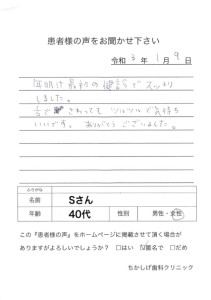 患者様の声をお聞かせ下さい
令和 3 年 1 月 9 日
年明け最初の健診でスッキリ
しました。
舌でさわってもツルツルで気持ち
いいです。ありがとうございました。
ふりがな
名前 Sさん
年齢 40代 性別 男性・女性
この『患者様の声』をホームページに掲載させて頂く場合が
ありますがよろしいでしょうか？ □はい ☑匿名で □だめ
ちかしげ歯科クリニック